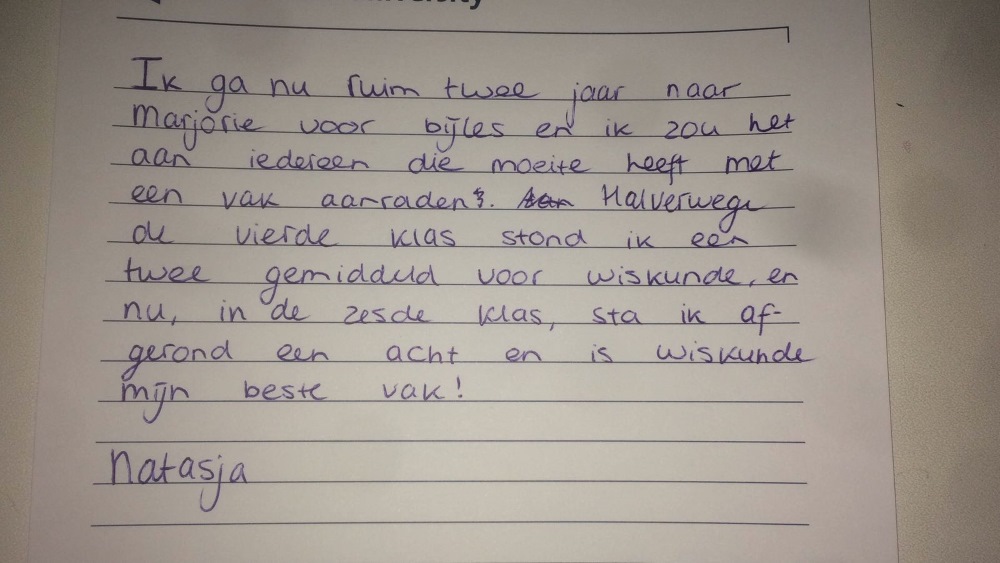 Ik ga nu ruim twee jaar naar
Marjorie voor bijles en ik zou het
aan iedereen die moeite heeft met
een vak aanraden. Halverwege
de vierde klas stond ik een
twee gemiddeld voor wiskunde, en
nu, in de zesde klas, sta ik af-
gerond een acht en is wiskunde
mijn beste vak!
Natasja